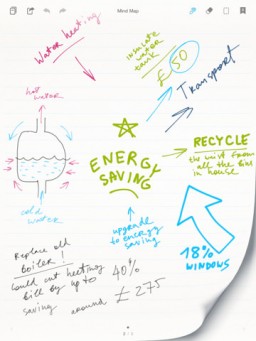 Mind Map
Water heating
insulate
water
tank
£50
Transport
hot
water
ENERGY
SAVING
RECYCLE
the
from
all the
in house
cold
water
upgrade
to energy
saving
18%
WINDOWS
Replace old
boiler!
Could cut heating
bill by up to
40%
saving around £275